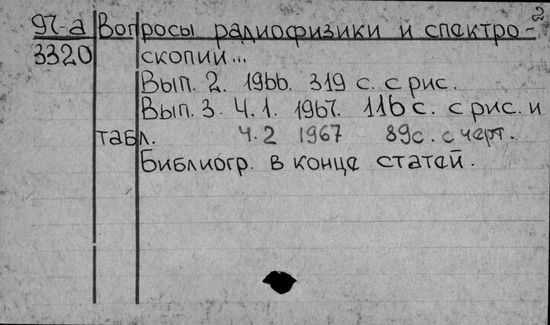 97-а Вопросы радиофизики и спектро- 2
3320 скопии...
Вып. 2. 1966. 319 с. с рис.
Вып. 3. Ч. 1. 1967. 116 с. с рис. и
табл. Ч. 2 1967 89с. с черт.
Библиогр. в конце статей.